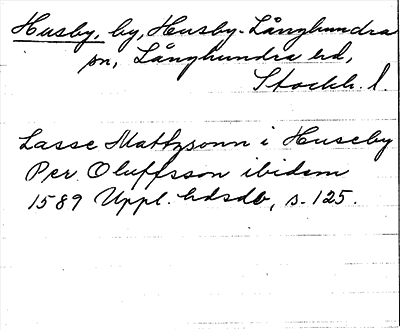 Husby, by, Husby-Långhundra
sn, Långhundra hd,
Stockh. l.
Lasse Mattzsonn i Huseby
Per Oluffsson ibidem
1589 Uppl. hdsdb, s. 125.